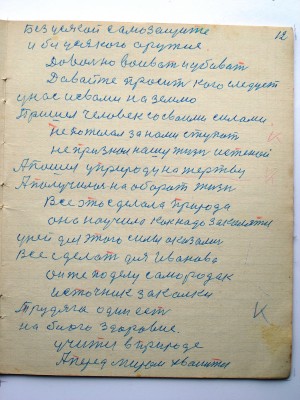 12
Без усякой самозащите
и биусякого оружие
Довольно воиват иубиват
Давайте просит кого следует
унас исвами на землю
Пришел человек сосвоими силами
непожелал за нами ступат
не признал нашу жизн истеной
Апошел уприроду на жертву
Аполучилося на оборат жизн
Все это сделала природа
она научило как надо закаляти
уней для этого силы оказами
Все сделат для Иванова
он же поделу самородак
источник закалки
К
Трудяга один ест
на благо здоровие.
учити в природе
Аперед миром хвалити
К